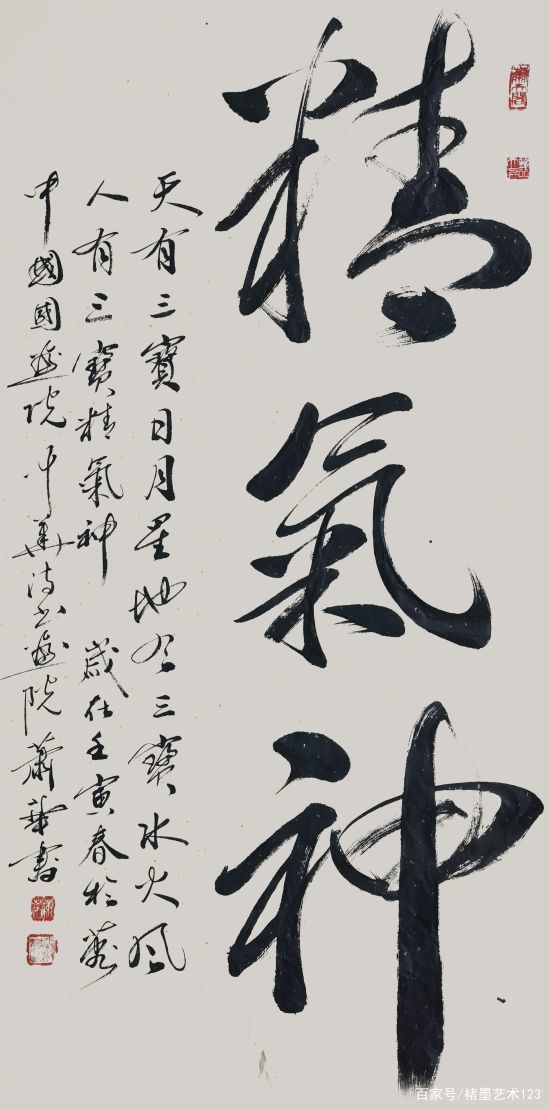 精氣神
天有三寶日月星地有三寶水火風
人有三寶精氣神 歲在壬寅春於
中國國畫院中華詩書畫院蕭華書
百家号/楮墨艺术123